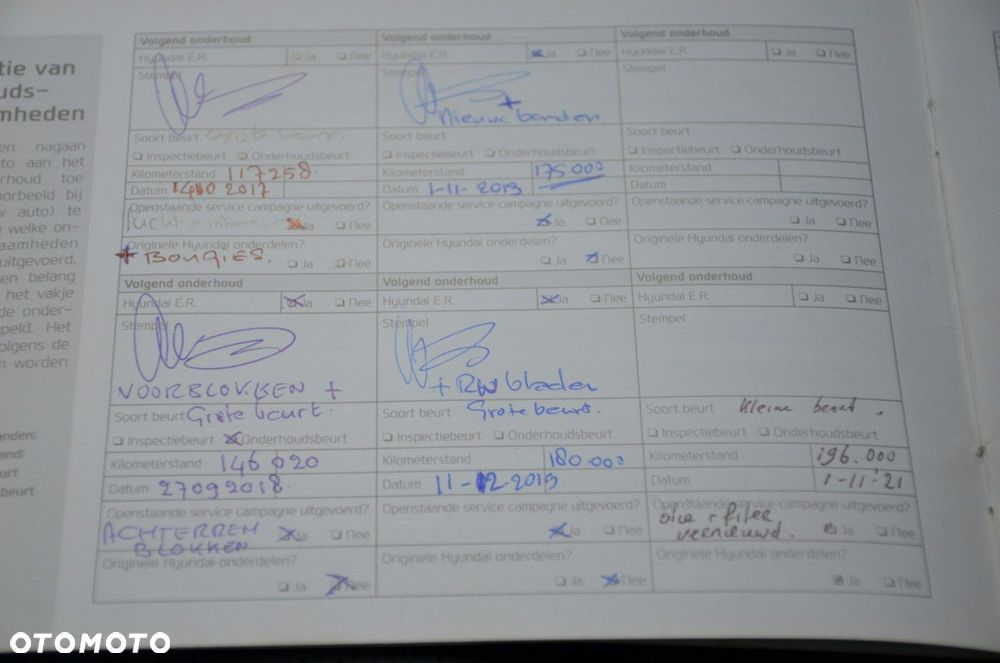 tie van
uds-
mheden
en nagaan
to aan het
rhoud toe
oorbeeld bij
w auto) te
n welke on-
eamheden
uitgevoerd,
en belang
het vakje
de onder-
peld. Het
olgens de
n worden
anden:
and:
urt
beurt
Volgend onderhoud
Hyundai E.R. Ja Nee
Stempel
Soort beurt Grote beurt.
Inspectiebeurt Onderhoudsbeurt
Kilometerstand 117258.
Datum 2017
Openstaande service campagne uitgevoerd?
Ja Nee
Originele Hyundai onderdelen?
+ BOUGIES. Ja Nee
Volgend onderhoud
Hyundai E.R. Ja Nee
Stempel
+
Nieuwe banden.
Soort beurt
Inspectiebeurt Onderhoudsbeurt
Kilometerstand 175000
Datum 1-11-2019
Openstaande service campagne uitgevoerd?
Ja Nee
Originele Hyundai onderdelen?
Ja Nee
Volgend onderhoud
Hyundai E.R. Ja Nee
Stempel
Soort beurt
Inspectiebeurt Onderhoudsbeurt
Kilometerstand
Datum
Openstaande service campagne uitgevoerd?
Ja Nee
Originele Hyundai onderdelen?
Ja Nee
Volgend onderhoud
Hyundai E.R. Ja Nee
Stempel
VOORBLOKKEN +
Soort beurt Grote beurt.
Inspectiebeurt Onderhoudsbeurt
Kilometerstand 146020
Datum 27092018.
Openstaande service campagne uitgevoerd?
ACHTERREM Ja Nee
BLOKKEN
Originele Hyundai onderdelen?
Ja Nee
Volgend onderhoud
Hyundai E.R. Ja Nee
Stempel
+ RW bladen
Soort beurt Grote beurt.
Inspectiebeurt Onderhoudsbeurt
Kilometerstand 180.000
Datum 11-12-2019
Openstaande service campagne uitgevoerd?
Ja Nee
Originele Hyundai onderdelen?
Ja Nee
Volgend onderhoud
Hyundai E.R. Ja Nee
Stempel
Soort beurt Kleine beurt.
Inspectiebeurt Onderhoudsbeurt
Kilometerstand 196.000
Datum 1-11-'21
Openstaande service campagne uitgevoerd?
olie + filter
vernieuwd. Ja Nee
Originele Hyundai onderdelen?
Ja Nee
OTOMOTO